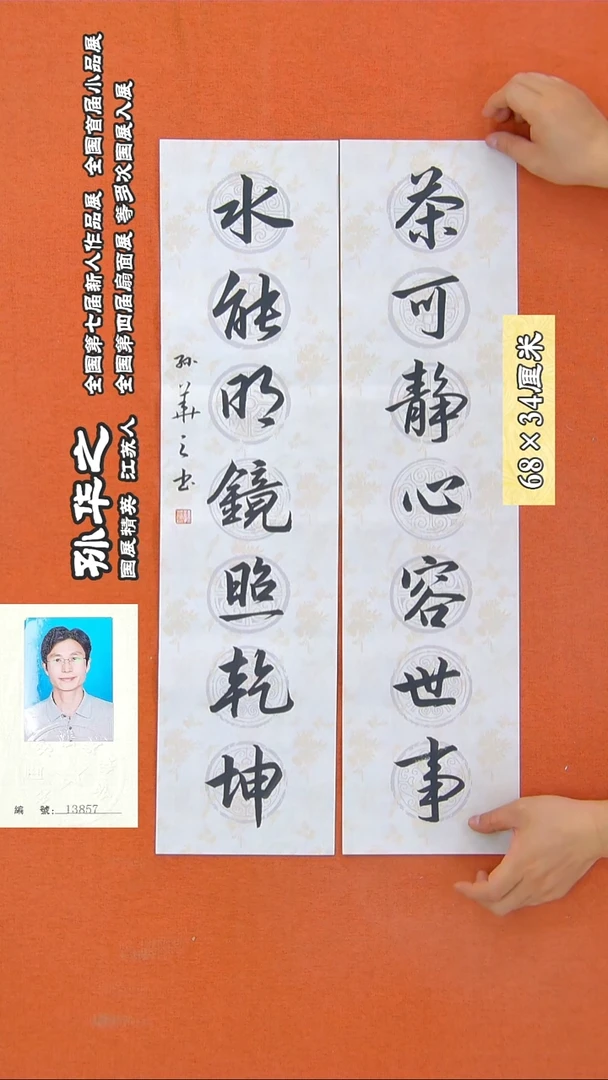 茶可静心容世事
水能明鏡照乾坤
孙華之书
孙华之
国展精英 江苏人
全国第七届新人作品展 全国首届小品展
全国第四届扇面展 等多次国展入展
68×34厘米
編 號: 13857